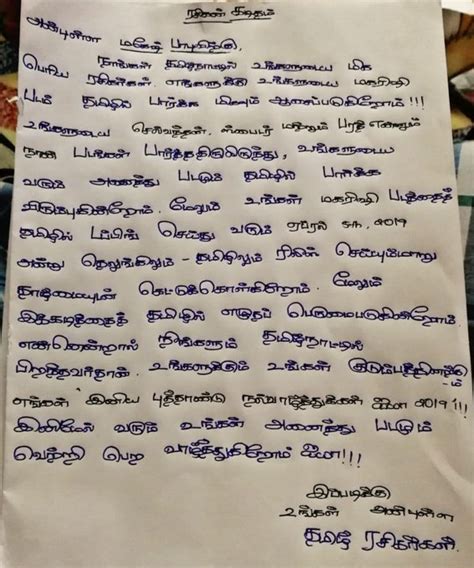 ரசிகன் கடிதம்
அன்புள்ள மகேஷ் பாபுவிற்கு,
நாங்கள் தமிழ்நாட்டில் உங்களுடைய மிக
பெரிய ரசிகர்கள். எங்களுக்கு உங்களுடைய மகரிஷி
படம் தமிழில் பார்க்க மிகவும் ஆசைப்படுகிறோம்!!!
உங்களுடைய செல்வந்தன், ஸ்பைடர் மற்றும் பரத் என்னும்
நான் படங்கள் பார்த்ததிலிருந்து, உங்களுடைய
வரும் அனைத்து படமும் தமிழில் பார்க்க
விரும்புகின்றோம். மேலும் உங்கள் மகரிஷி படத்தைத்
தமிழில் டப்பிங் செய்து வரும் ஏப்ரல் 5th, 2019
அன்று தெலுங்கிலும் - தமிழிலும் ரிலீஸ் செய்யுமாறு
தாழ்மையுடன் கேட்டுக்கொள்கிறோம். மேலும்
இக்கடிதத்தைத் தமிழில் எழுதப் பெருமைபடுகின்றோம்.
ஏனென்றால் நீங்களும் தமிழ்நாட்டில்
பிறந்தவர்தான். உங்களுக்கும் உங்கள் குடும்பத்தினருக்கு
-ம்
எங்கள் இனிய புத்தாண்டு நல்வாழ்த்துக்கள் ஐயா 2019!!!
இனிமேல் வரும் உங்கள் அனைத்து படமும்
வெற்றி பெற வாழ்த்துகிறோம் ஐயா!!!
இப்படிக்கு
உங்கள் அன்புள்ள
தமிழ் ரசிகர்கள்.